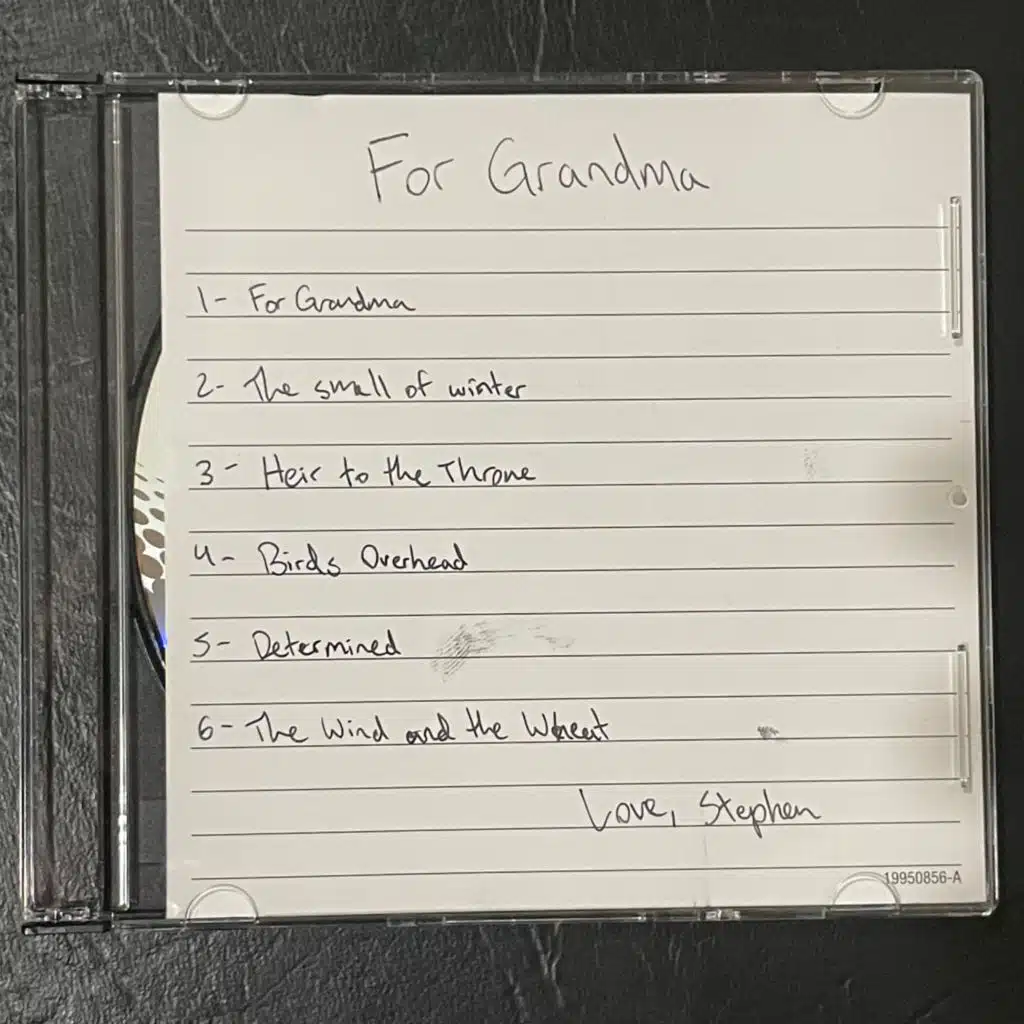 For Grandma
1- For Grandma
2- The small of winter
3- Heir to the Throne
4- Birds Overhead
5- Determined
6- The Wind and the Wheat
Love, Stephen
19950856-A